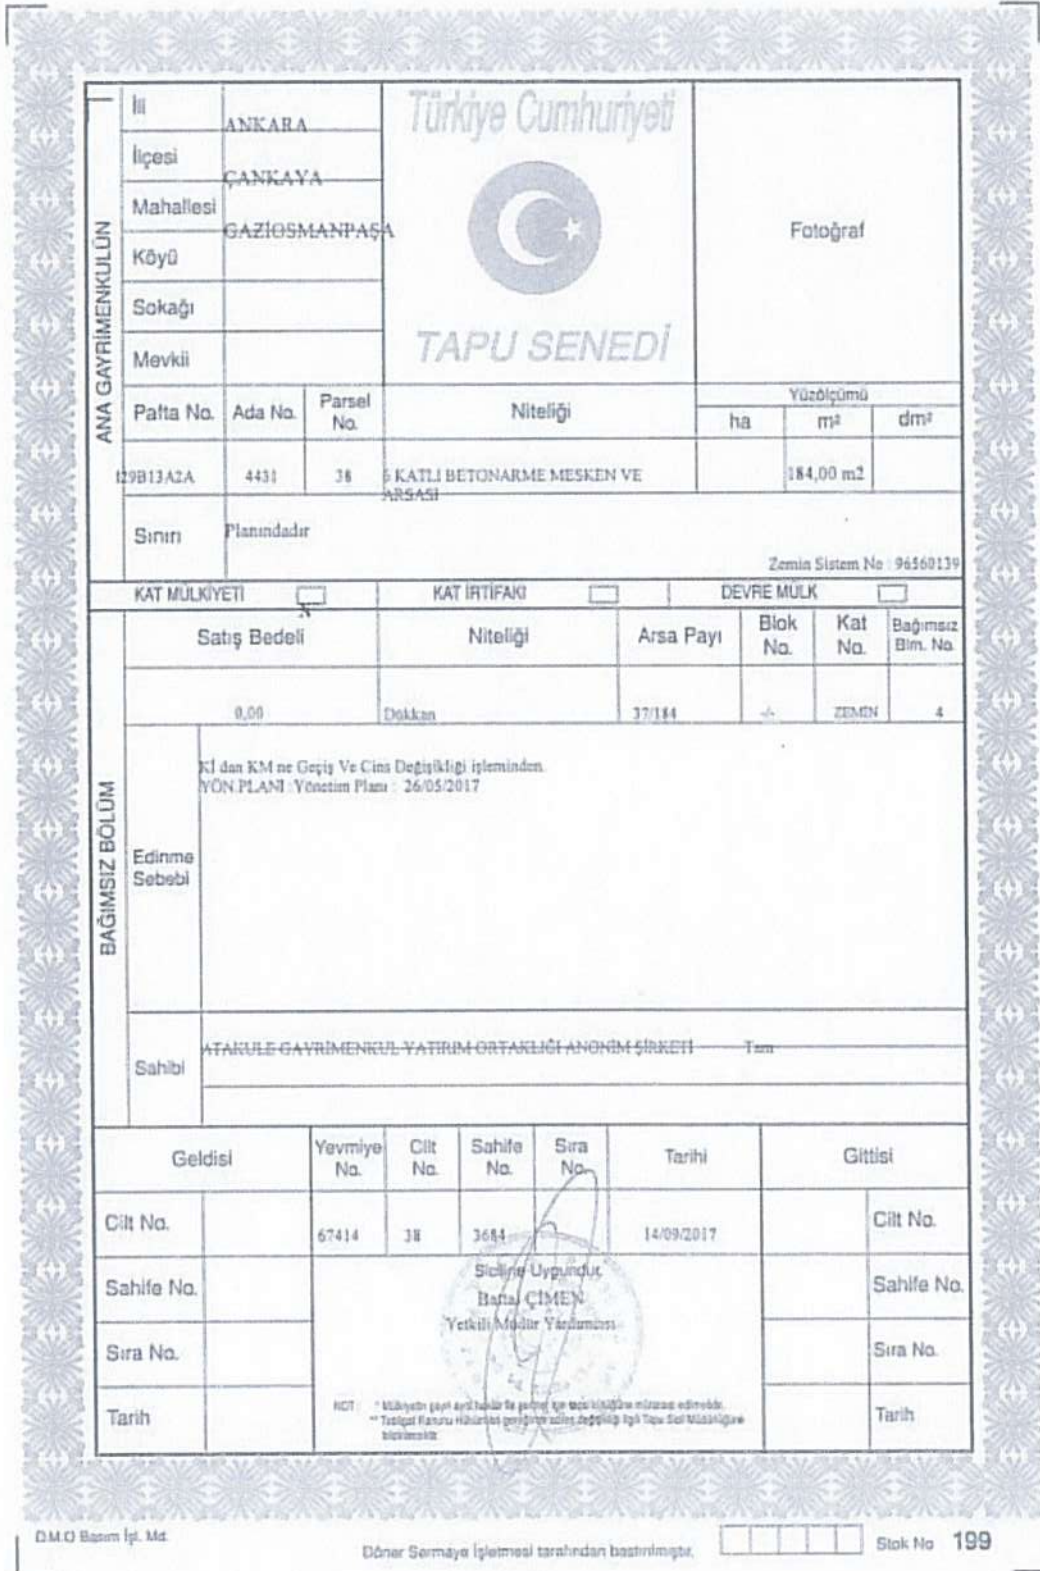 İli
ANKARA
Türkiye Cumhuriyeti
İlçesi
ÇANKAYA
Mahallesi
GAZİOSMANPAŞA
Fotoğraf
Köyü
Sokağı
TAPU SENEDİ
Mevkii
ANA GAYRİMENKULÜN
Pafta No. Ada No. Parsel No. Niteliği Yüzölçümü
ha m² dm²
I29B13A2A 4431 38 6 KATLI BETONARME MESKEN VE 184,00 m2
ARSASI
Sınırı Planındadır
Zemin Sistem No : 96560139
KAT MÜLKİYETİ X KAT İRTİFAKI DEVRE MÜLK
BAĞIMSIZ BÖLÜM
Satış Bedeli Niteliği Arsa Payı Blok No. Kat No. Bağımsız Blm. No.
0,00 Dükkan 37/184 -/- ZEMİN 4
Edinme Sebebi
Kİ dan KM ne Geçiş Ve Cins Değişikliği işleminden.
YÖN.PLANI :Yönetim Planı : 26/05/2017
Sahibi
ATAKULE GAYRİMENKUL YATIRIM ORTAKLIĞI ANONİM ŞİRKETİ Tam
Geldisi Yevmiye No. Cilt No. Sahife No. Sıra No. Tarihi Gittisi
Cilt No. 67414 38 3684 14/09/2017 Cilt No.
Sahife No. Siciline Uygundur. Sahife No.
Battal ÇİMEN
Yetkili Müdür Yardımcısı
Sıra No. Sıra No.
Tarih Tarih
NOT : * Mülkiyetin gayri ayni haklar ile şerhler için tapu kütüğüne müracaat edilmelidir.
** Tebligat Kanunu Hükümleri gereğince adres değişikliği ilgili Tapu Sicil Müdürlüğüne
bildirilecektir.
D.M.O Basım İşl. Md.
Döner Sermaye İşletmesi tarafından bastırılmıştır.
Stok No 199